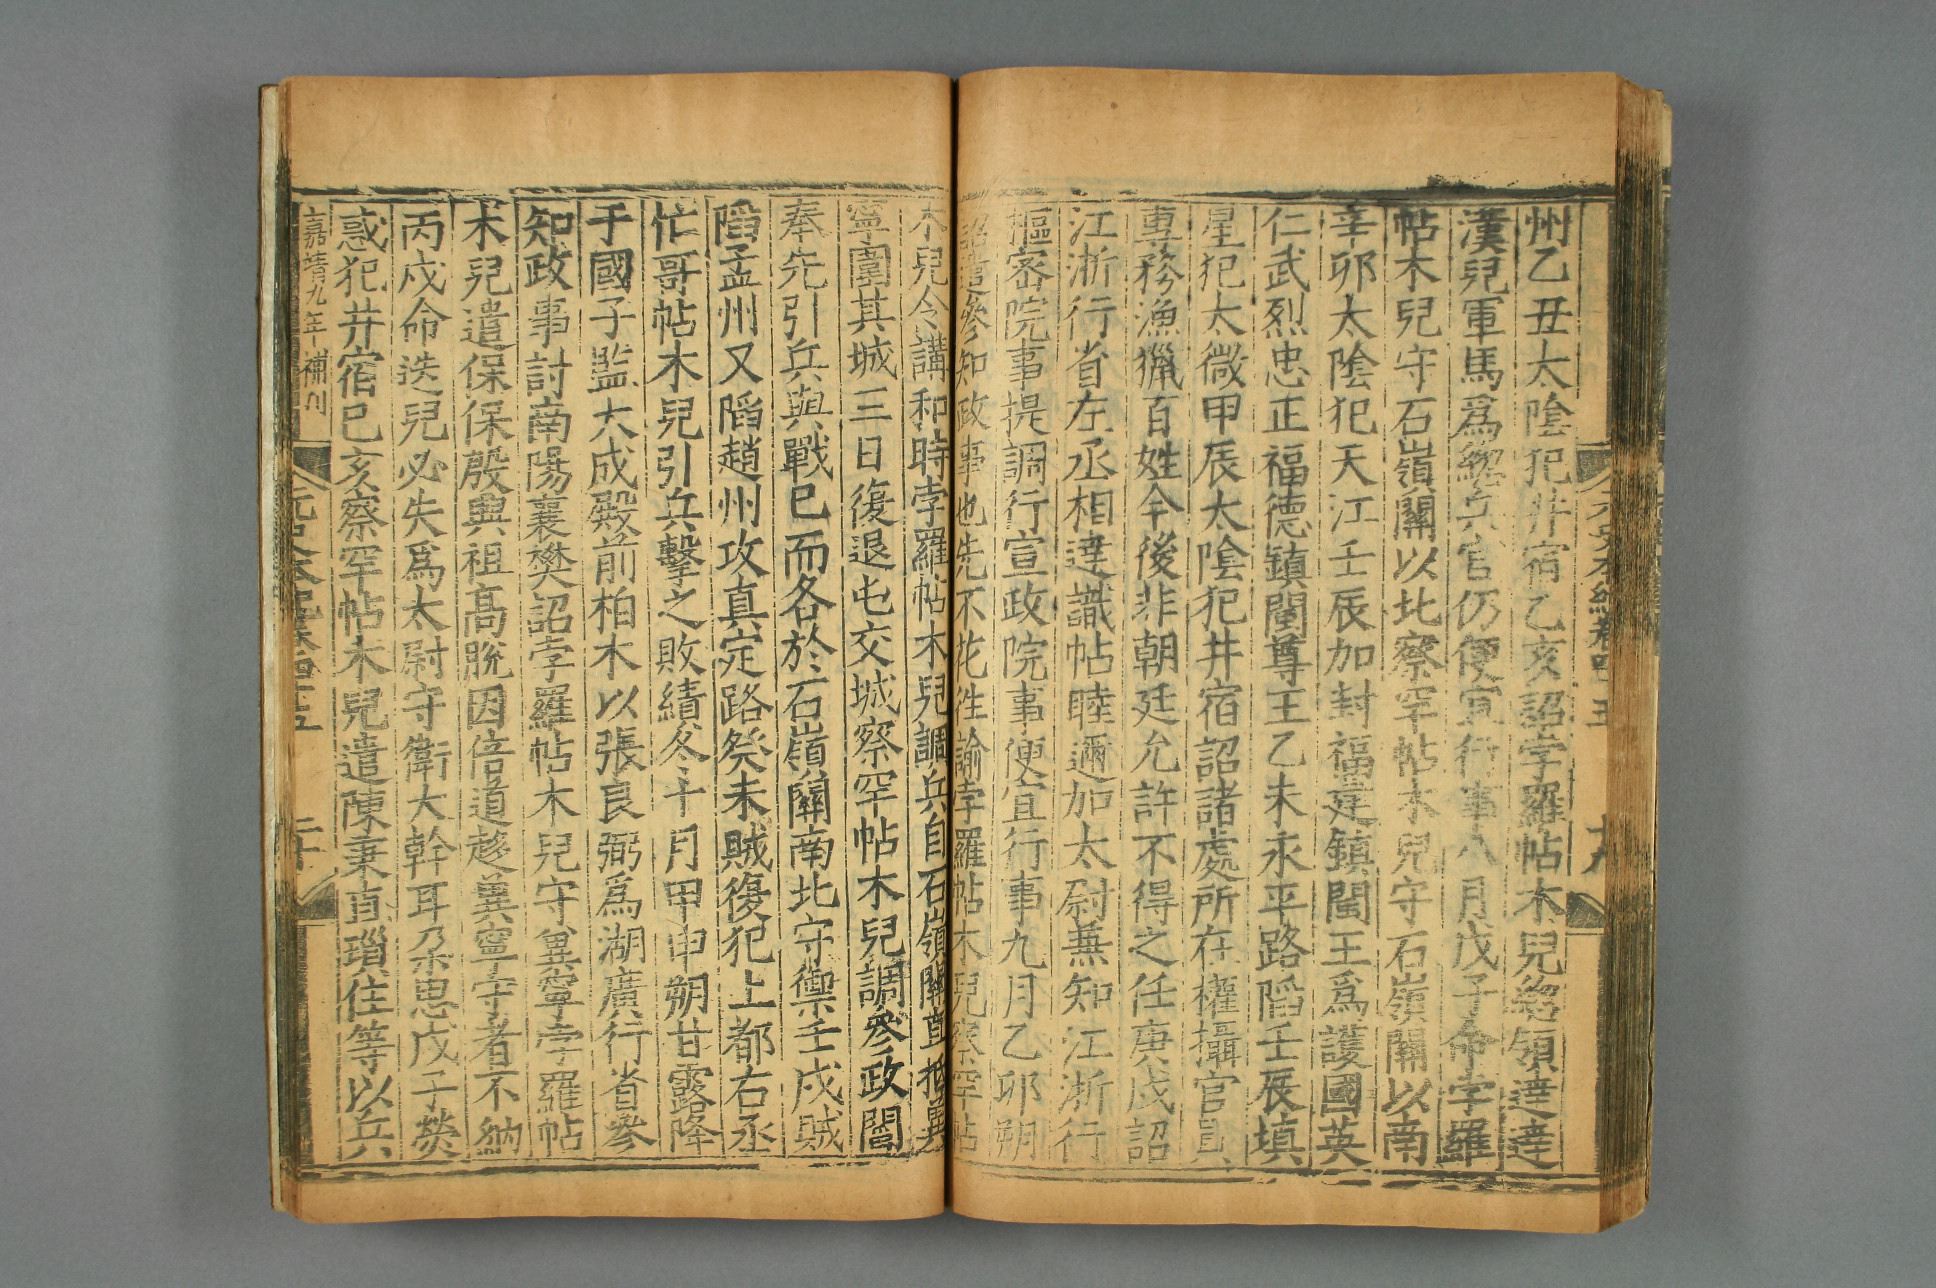 元史本紀卷四十五
十九
州乙丑太陰犯井宿乙亥詔孛羅帖木兒緫領達達
漢兒軍馬爲緫兵官仍便宜行事八月戊子命孛羅
帖木兒守石嶺關以北察罕帖木兒守石嶺關以南
辛卯太陰犯天江壬辰加封福建鎮閩王爲護國英
仁武烈忠正福德鎮閩尊王乙未永平路陷壬辰填
星犯太微甲辰太陰犯井宿詔諸處所在權攝官員
專務漁獵百姓今後非朝廷允許不得之任庚戌詔
江浙行省左丞相達識帖睦邇加太尉兼知江浙行
樞密院事提調行宣政院事便宜行事九月乙卯朔
詔遣參知政事也先不花徃諭孛羅帖木兒察罕帖
木兒令講和時孛羅帖木兒調兵自石嶺關直抵兾
寧圍其城三日復退屯交城察罕帖木兒調參政閻
奉先引兵與戰已而各於石嶺關南北守禦壬戌賊
陷孟州又陷趙州攻真定路癸未賊復犯上都右丞
忙哥帖木兒引兵擊之敗績冬十月甲申朔甘露降
于國子監大成殿前柏木以張良弼爲湖廣行省參
知政事討南陽襄樊詔孛羅帖木兒守兾寧孛羅帖
木兒遣保保殷興祖高脫因倍道趍兾寧守者不納
丙戌命迭兒必失爲太尉守衛大斡耳朶思戊子熒
惑犯井宿己亥察罕帖木兒遣陳秉直瑣住等以兵
嘉靖九年補刊
元史本紀卷四十五
二十